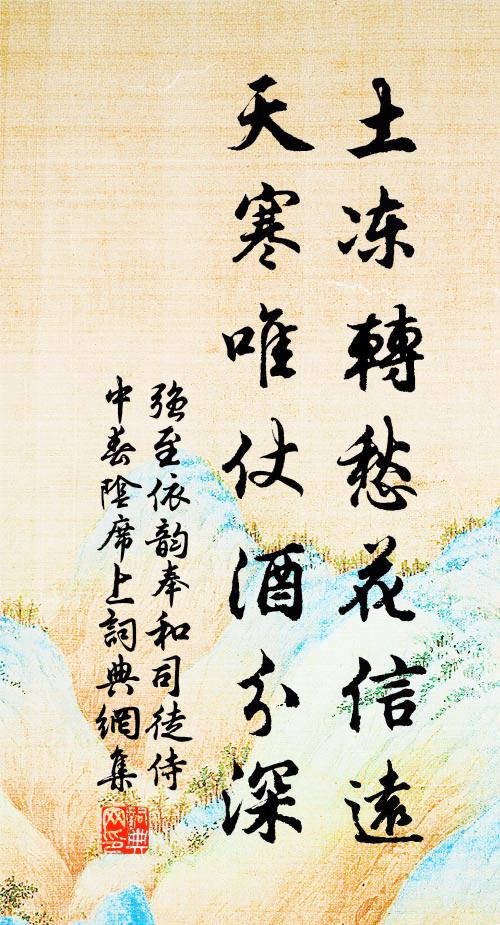 土冻轉愁花信遠
天寒唯仗酒分深
强至依韵奉和司徒侍
中春陰席上詞典網集
詞典
网印